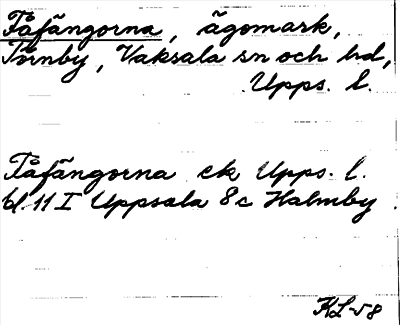 Fåfängorna, ägomark,
Törnby, Vaksala sn och hd,
Upps. l.
Fåfängorna ek Upps. l.
bl. 11 I Uppsala 8c Halmby.
KL-58